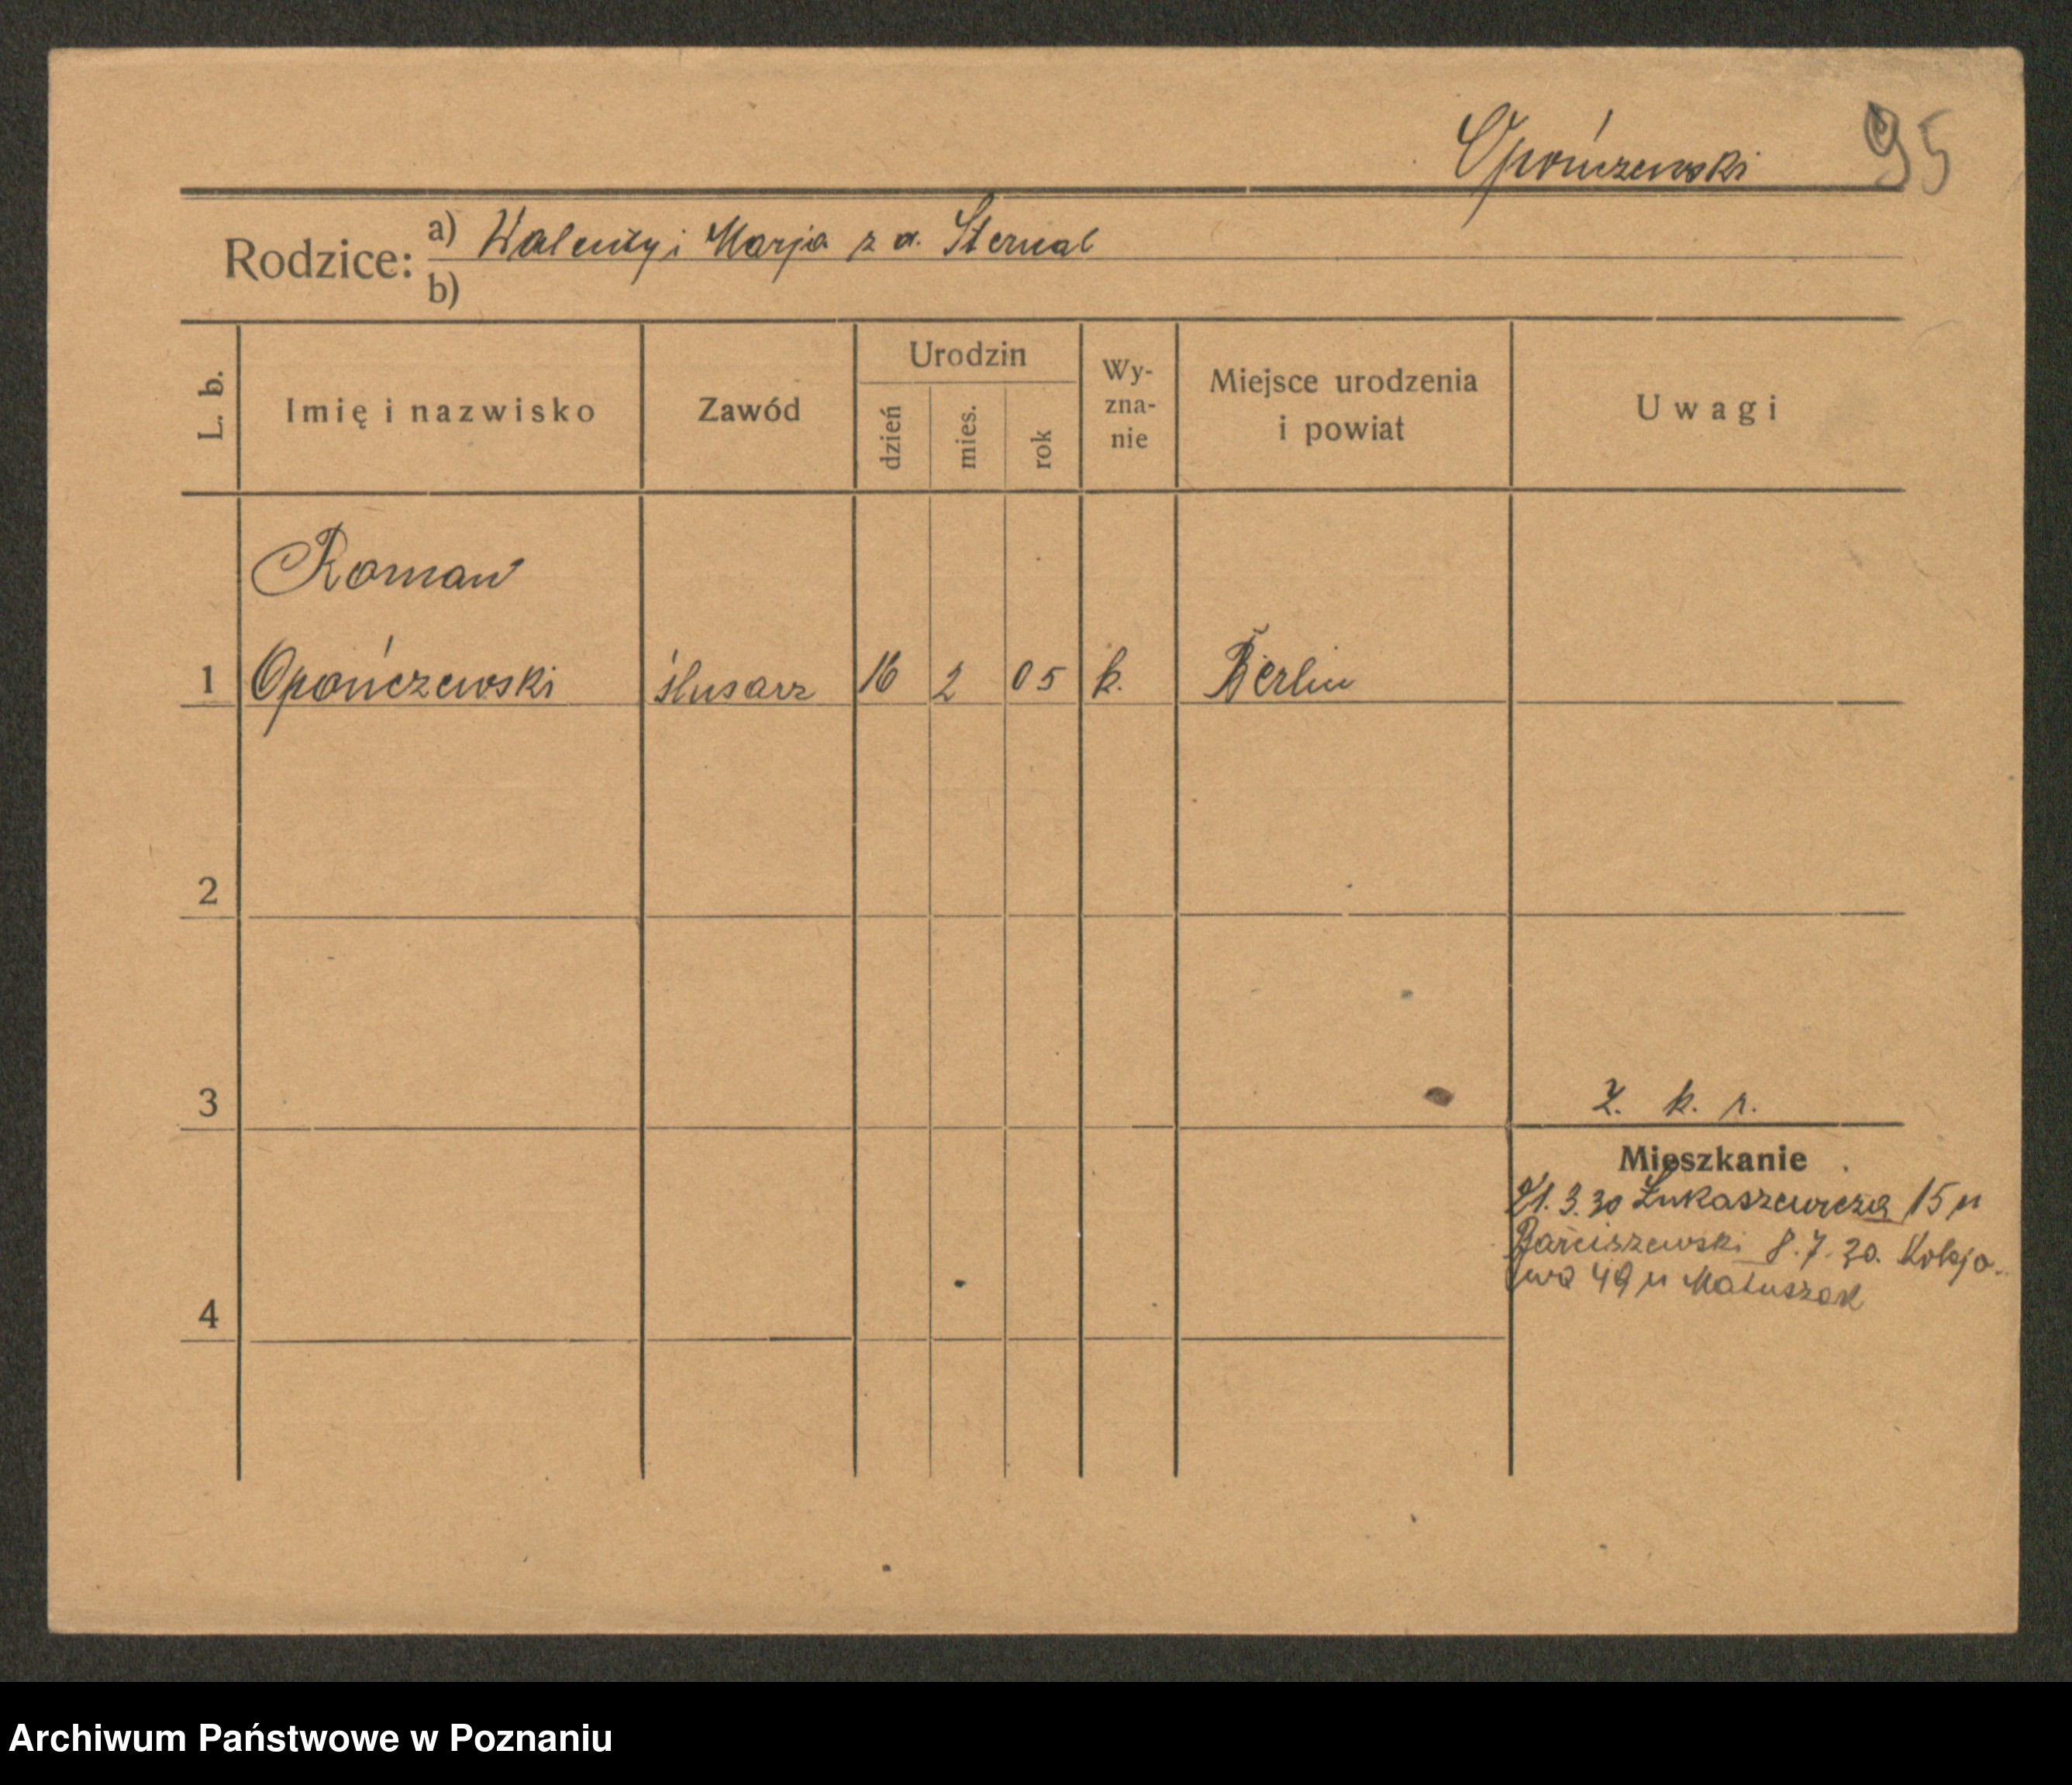 Opończewski 95
Rodzice: a) Walenty i Marja z d. Sternal
b)
L. b. Imię i nazwisko Zawód Urodzin dzień mies. rok Wy-zna-nie Miejsce urodzenia i powiat Uwagi
Roman
1 Opończewski ślusarz 16 2 05 k. Berlin
2
3 k. r.
Mieszkanie
21.3.30 Łukaszewicza 15 u
Barciszewski 8.7.30. Kolejo-
wa 49 u Matuszak
4
Archiwum Państwowe w Poznaniu